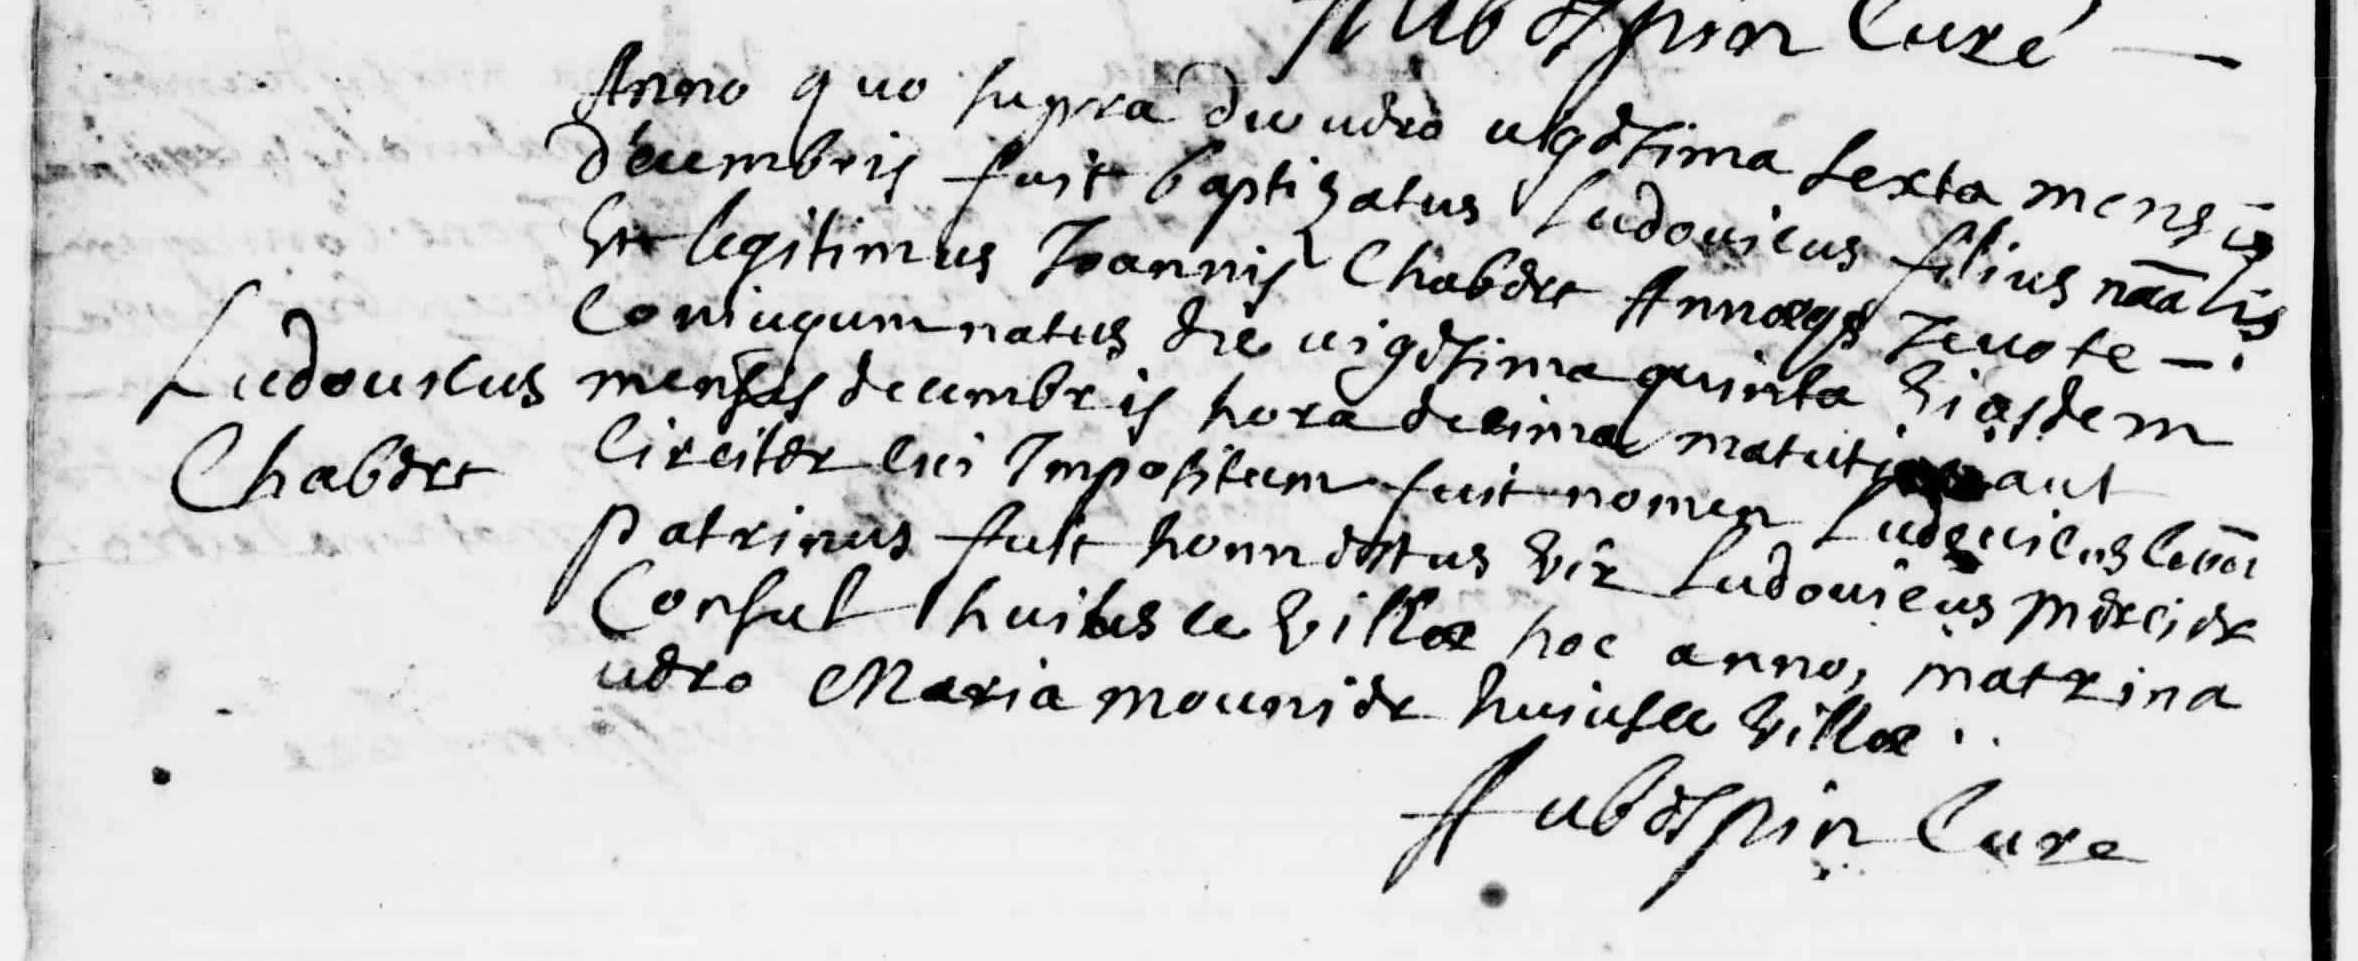 Aubespin Curé
Anno quo supra die uero uigesima sexta mensis
decembris fuit baptizatus Ludouicus filius nãalis
Et legitimus Joannis Chabert Annæqȝ Juuote
Coniugum natus die uigesima quinta Eiusdem
Ludouicus mensis decembris hora decima aut
Chabert Circiter cui Impositum fuit nomen Ludouicus
patrinus fuit honnestus Vir Ludouicus Mercier
Consul huiusce Villæ hoc anno, matrina
uero Maria mounier huiusce Villæ
Aubespin Cure